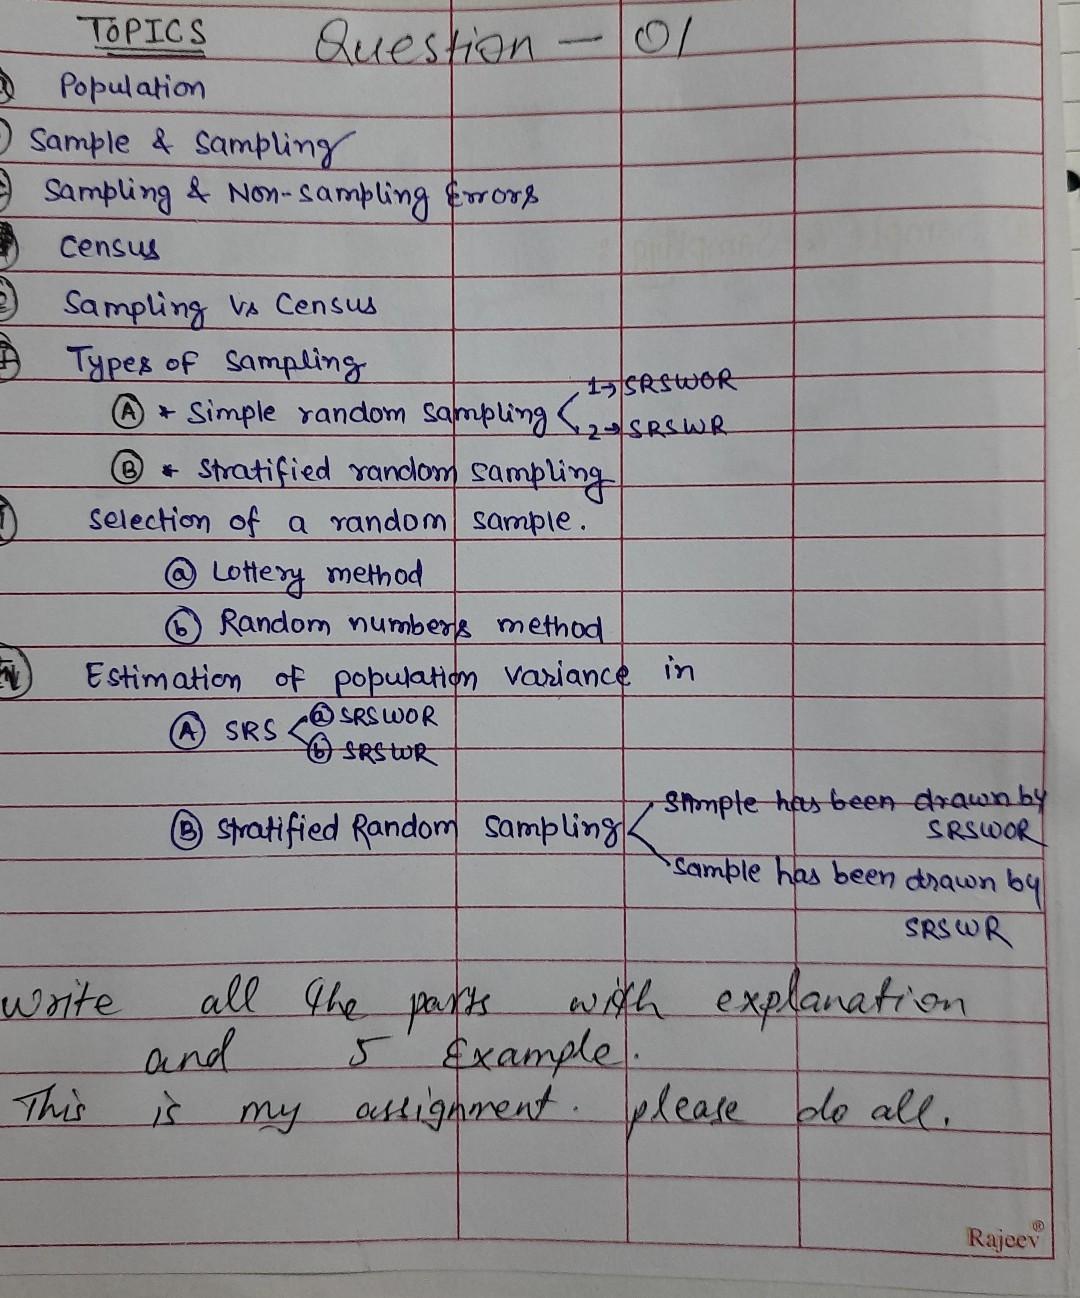 TOPICS Question - 01
Population
Sample & Sampling
Sampling & Non-sampling Errors
Census
Sampling Vs Census
Types of Sampling
1→ SRSWOR
(A) * Simple random sampling
2→ SRSWR
(B) * Stratified random sampling
Selection of a random sample.
(a) Lottery method
(b) Random numbers method
Estimation of population variance in
(a) SRSWOR
(A) SRS
(b) SRSWR
Sample has been drawn by
SRSWOR
(B) Stratified Random Sampling
Sample has been drawn by
SRSWR
Write all the parts with explanation
and 5 Example.
This is my assignment. please do all.
Rajeev®